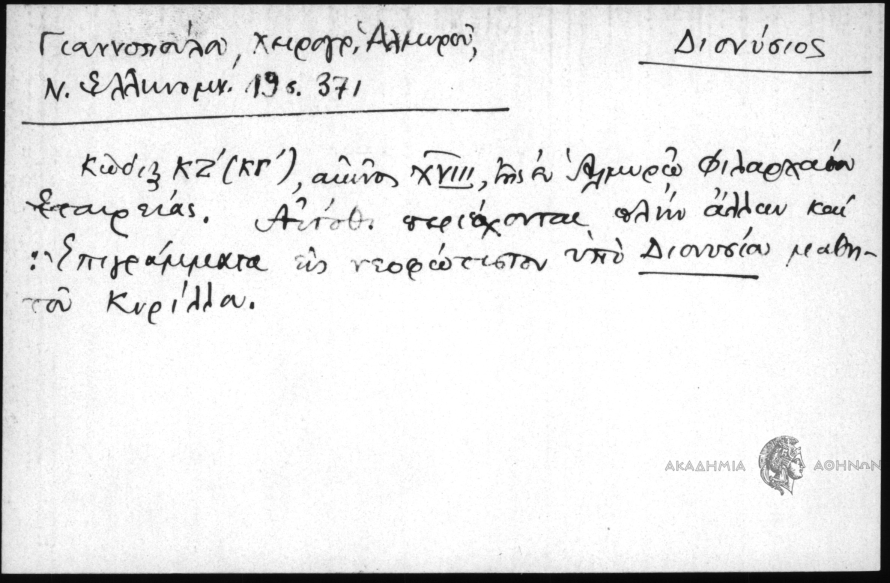 Γιαννοπούλου, Χειρογρ. Ἁλμυροῦ,
Διονύσιος
Ν. Ἑλληνομν. 19 σ. 371
Κῶδιξ ΚΖ΄ (ΚΓ΄), αἰῶνος XVIII, τῆς ἐν Ἁλμυρῷ Φιλαρχαίου
Ἑταιρείας. Αὐτόθ. περιέχονται πλὴν ἄλλων καὶ
Ἐπιγράμματα εἰς νεοφώτιστον ὑπὸ Διονυσίου μαθη-
τοῦ Κυρίλλου.
ΑΚΑΔΗΜΙΑ ΑΘΗΝΩΝ